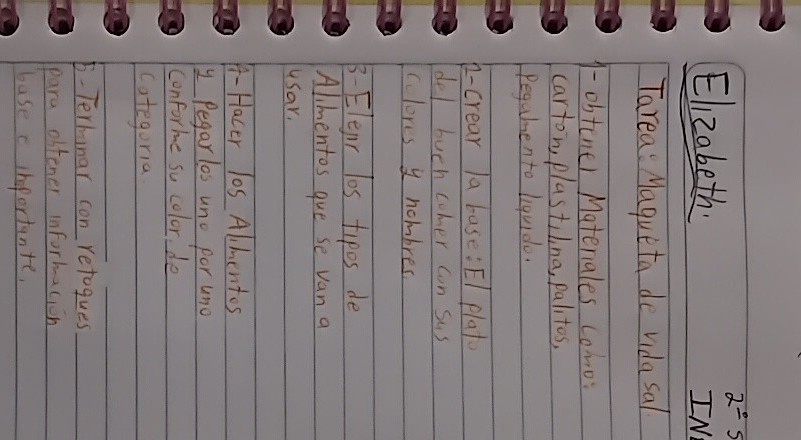 2° S
Elizabeth.
Tarea: Maqueta de vida sal
1-obtener Materiales como:
carton, plastilina, palitos,
pegamento liquido.
2-crear la base: El plato
del buen comer con sus
colores y nombres.
3-Elejir los tipos de
Alimentos que se van a
usar.
4-Hacer los Alimentos
y pegarlos uno por uno
conforme su color, de
categoria.
5-Terminar con retoques
para obtener información
base e importante.